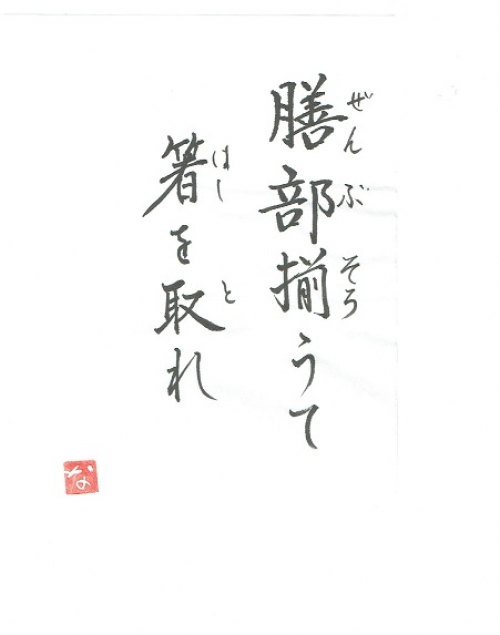 膳部揃うて
ぜんぶそろ
箸を取れ
はしと
な